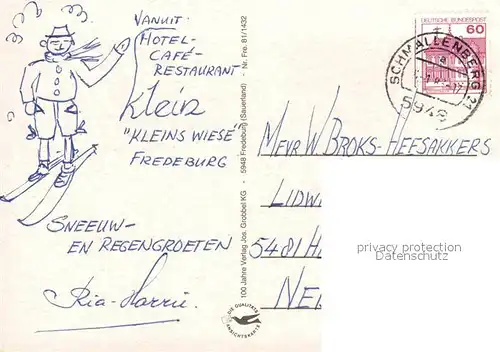 VANUIT:
HOTEL-
CAFÉ-
RESTAURANT
Klein
"KLEINS WIESE"
FREDEBURG
SNEEUW-
EN REGENGROETEN
Ria-Harrie.
100 Jahre Verlag Jos. Grobbel KG · 5948 Fredeburg (Sauerland) - Nr. Fre. 81/1432
DIE QUALITÄTS
ANSICHTSKARTE
DEUTSCHE BUNDESPOST
60
SCHMALLENBERG 21
5948
MEVR W BROKS-HEESAKKERS
LIDW
5481 H
NE
privacy protection
Datenschutz